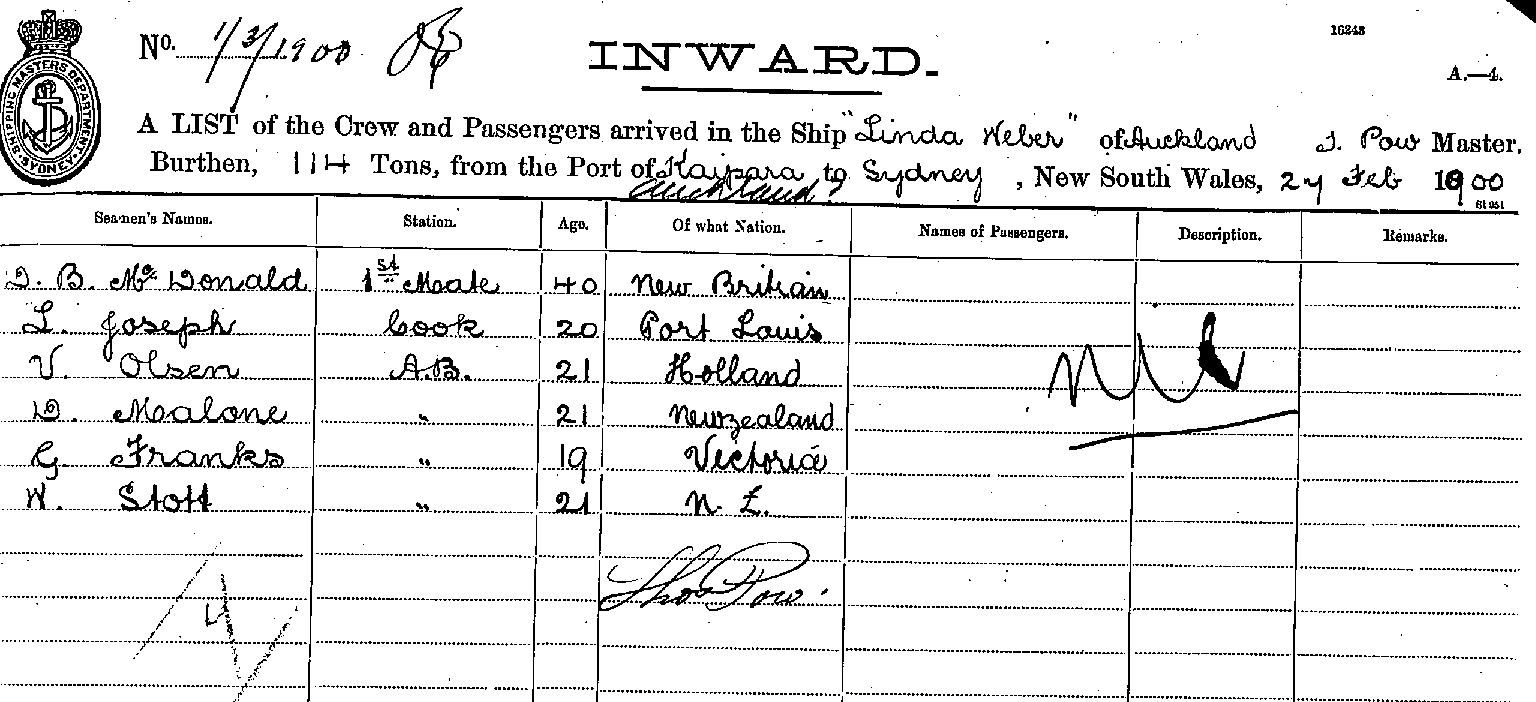 SHIPPING MASTERS DEPARTMENT SYDNEY
No. 1/3/1900
INWARD.
16248
A.—4.
A LIST of the Crew and Passengers arrived in the Ship "Linda Weber" of Auckland T. Pow Master,
Burthen, 114 Tons, from the Port of Kaipara to Sydney, New South Wales, 27 Feb 1900
Auckland?
61 951
Seamen's Names. Station. Age. Of what Nation. Names of Passengers. Description. Remarks.
D. B. McDonald 1st Mate 40 New Britian
L. Joseph Cook 20 Port Louis
V. Olsen A.B. 21 Holland
D. Malone " 21 Newzealand
G Franks " 19 Victoria
W. Stott " 21 N. Z.
Nil
Thos Pow.